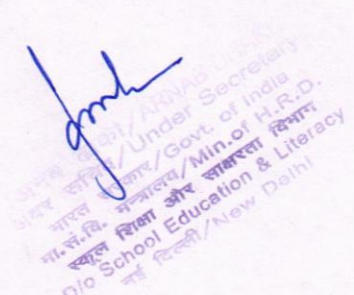 अवर सचिव/Under Secretary
भारत सरकार/Govt. of India
मा.सं.वि. मन्त्रालय/Min.of H.R.D.
स्कूल शिक्षा और साक्षरता विभाग
D/o School Education & Literacy
नई दिल्ली/New Delhi